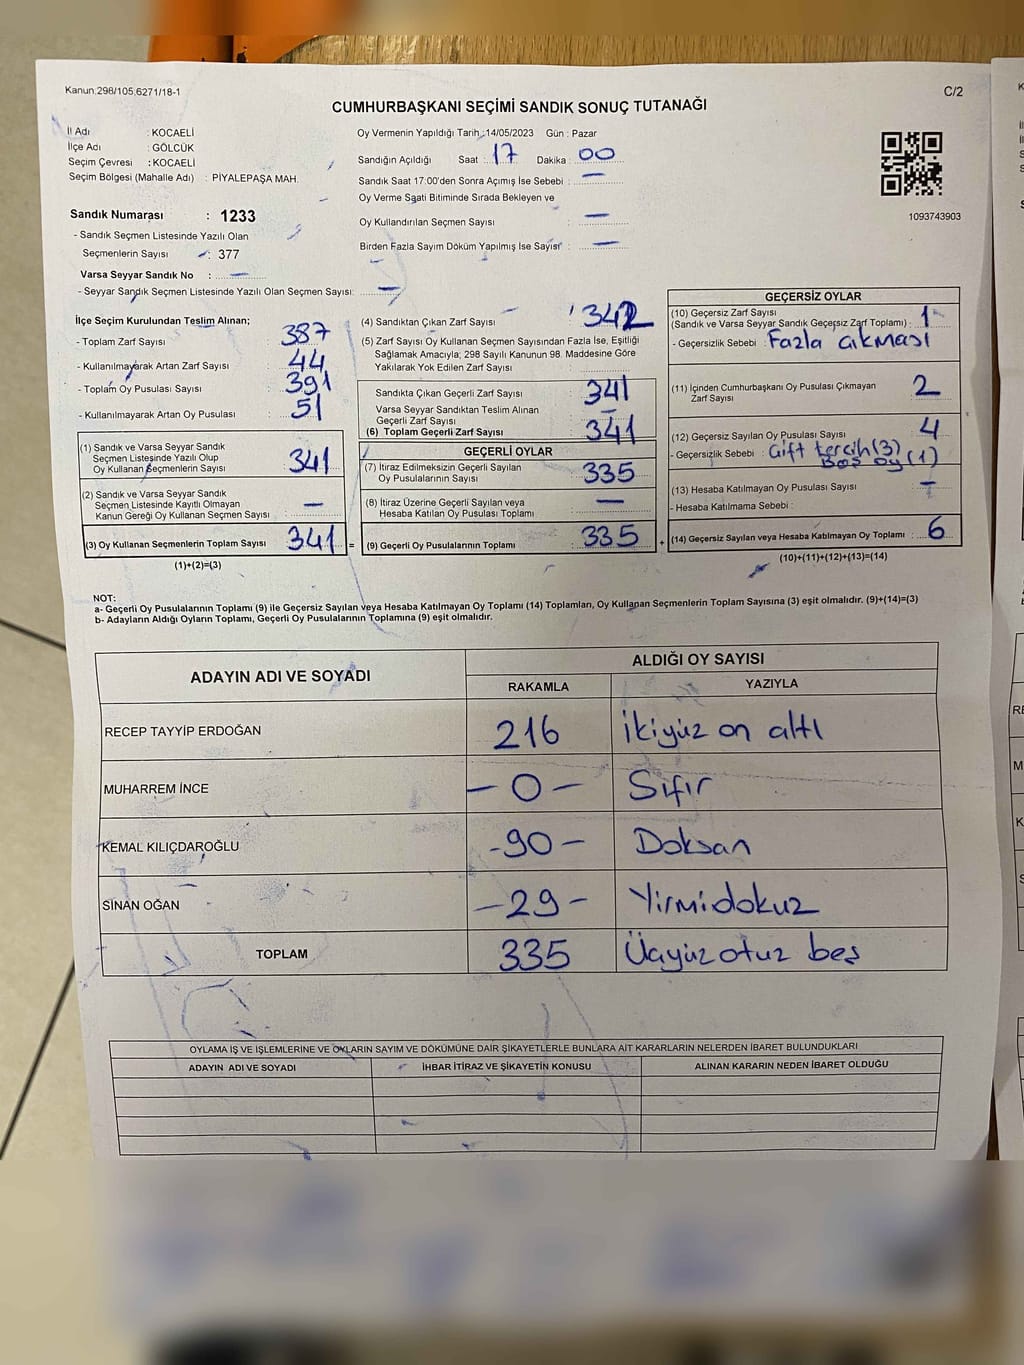 Kanun.298/105,6271/18-1
C/2
CUMHURBAŞKANI SEÇİMİ SANDIK SONUÇ TUTANAĞI
İl Adı : KOCAELİ
İlçe Adı : GÖLCÜK
Seçim Çevresi : KOCAELİ
Seçim Bölgesi (Mahalle Adı) : PİYALEPAŞA MAH.
Sandık Numarası : 1233
- Sandık Seçmen Listesinde Yazılı Olan
Seçmenlerin Sayısı : 377
Varsa Seyyar Sandık No : —
- Seyyar Sandık Seçmen Listesinde Yazılı Olan Seçmen Sayısı: —
Oy Vermenin Yapıldığı Tarih :14/05/2023 Gün : Pazar
Sandığın Açıldığı Saat : 17 Dakika : 00
Sandık Saat 17:00'den Sonra Açımış İse Sebebi : —
Oy Verme Saati Bitiminde Sırada Bekleyen ve
Oy Kullandırılan Seçmen Sayısı —
Birden Fazla Sayım Döküm Yapılmış İse Sayısı : —
1093743903
İlçe Seçim Kurulundan Teslim Alınan;
- Toplam Zarf Sayısı : 387
- Kullanılmayarak Artan Zarf Sayısı : 44
- Toplam Oy Pusulası Sayısı : 391
- Kullanılmayarak Artan Oy Pusulası : 51
(1) Sandık ve Varsa Seyyar Sandık
Seçmen Listesinde Yazılı Olup
Oy Kullanan Seçmenlerin Sayısı : 341
(2) Sandık ve Varsa Seyyar Sandık
Seçmen Listesinde Kayıtlı Olmayan
Kanun Gereği Oy Kullanan Seçmen Sayısı : —
(3) Oy Kullanan Seçmenlerin Toplam Sayısı : 341 =
(1)+(2)=(3)
(4) Sandıktan Çıkan Zarf Sayısı : 342
(5) Zarf Sayısı Oy Kullanan Seçmen Sayısından Fazla İse, Eşitliği
Sağlamak Amacıyla; 298 Sayılı Kanunun 98. Maddesine Göre
Yakılarak Yok Edilen Zarf Sayısı :
Sandıkta Çıkan Geçerli Zarf Sayısı : 341
Varsa Seyyar Sandıktan Teslim Alınan
Geçerli Zarf Sayısı : —
(6) Toplam Geçerli Zarf Sayısı : 341
GEÇERLİ OYLAR
(7) İtiraz Edilmeksizin Geçerli Sayılan
Oy Pusulalarının Sayısı : 335
(8) İtiraz Üzerine Geçerli Sayılan veya
Hesaba Katılan Oy Pusulası Toplamı : —
(9) Geçerli Oy Pusulalarının Toplamı : 335 +
GEÇERSİZ OYLAR
(10) Geçersiz Zarf Sayısı
(Sandık ve Varsa Seyyar Sandık Geçersiz Zarf Toplamı) : 1
- Geçersizlik Sebebi : Fazla çıkması
(11) İçinden Cumhurbaşkanı Oy Pusulası Çıkmayan
Zarf Sayısı : 2
(12) Geçersiz Sayılan Oy Pusulası Sayısı : 4
- Geçersizlik Sebebi : Çift tercih (3)
Boş oy (1)
(13) Hesaba Katılmayan Oy Pusulası Sayısı : —
- Hesaba Katılmama Sebebi :
(14) Geçersiz Sayılan veya Hesaba Katılmayan Oy Toplamı : 6
(10)+(11)+(12)+(13)=(14)
NOT:
a- Geçerli Oy Pusulalarının Toplamı (9) ile Geçersiz Sayılan veya Hesaba Katılmayan Oy Toplamı (14) Toplamları, Oy Kullanan Seçmenlerin Toplam Sayısına (3) eşit olmalıdır. (9)+(14)=(3)
b- Adayların Aldığı Oyların Toplamı, Geçerli Oy Pusulalarının Toplamına (9) eşit olmalıdır.
ADAYIN ADI VE SOYADI
ALDIĞI OY SAYISI
RAKAMLA YAZIYLA
RECEP TAYYİP ERDOĞAN 216 İkiyüz on altı
MUHARREM İNCE — 0 — Sıfır
KEMAL KILIÇDAROĞLU - 90 — Doksan
SİNAN OĞAN — 29 - Yirmidokuz
TOPLAM 335 Üçyüz otuz beş
OYLAMA İŞ VE İŞLEMLERİNE VE OYLARIN SAYIM VE DÖKÜMÜNE DAİR ŞİKAYETLERLE BUNLARA AİT KARARLARIN NELERDEN İBARET BULUNDUKLARI
ADAYIN ADI VE SOYADI İHBAR İTİRAZ VE ŞİKAYETİN KONUSU ALINAN KARARIN NEDEN İBARET OLDUĞU